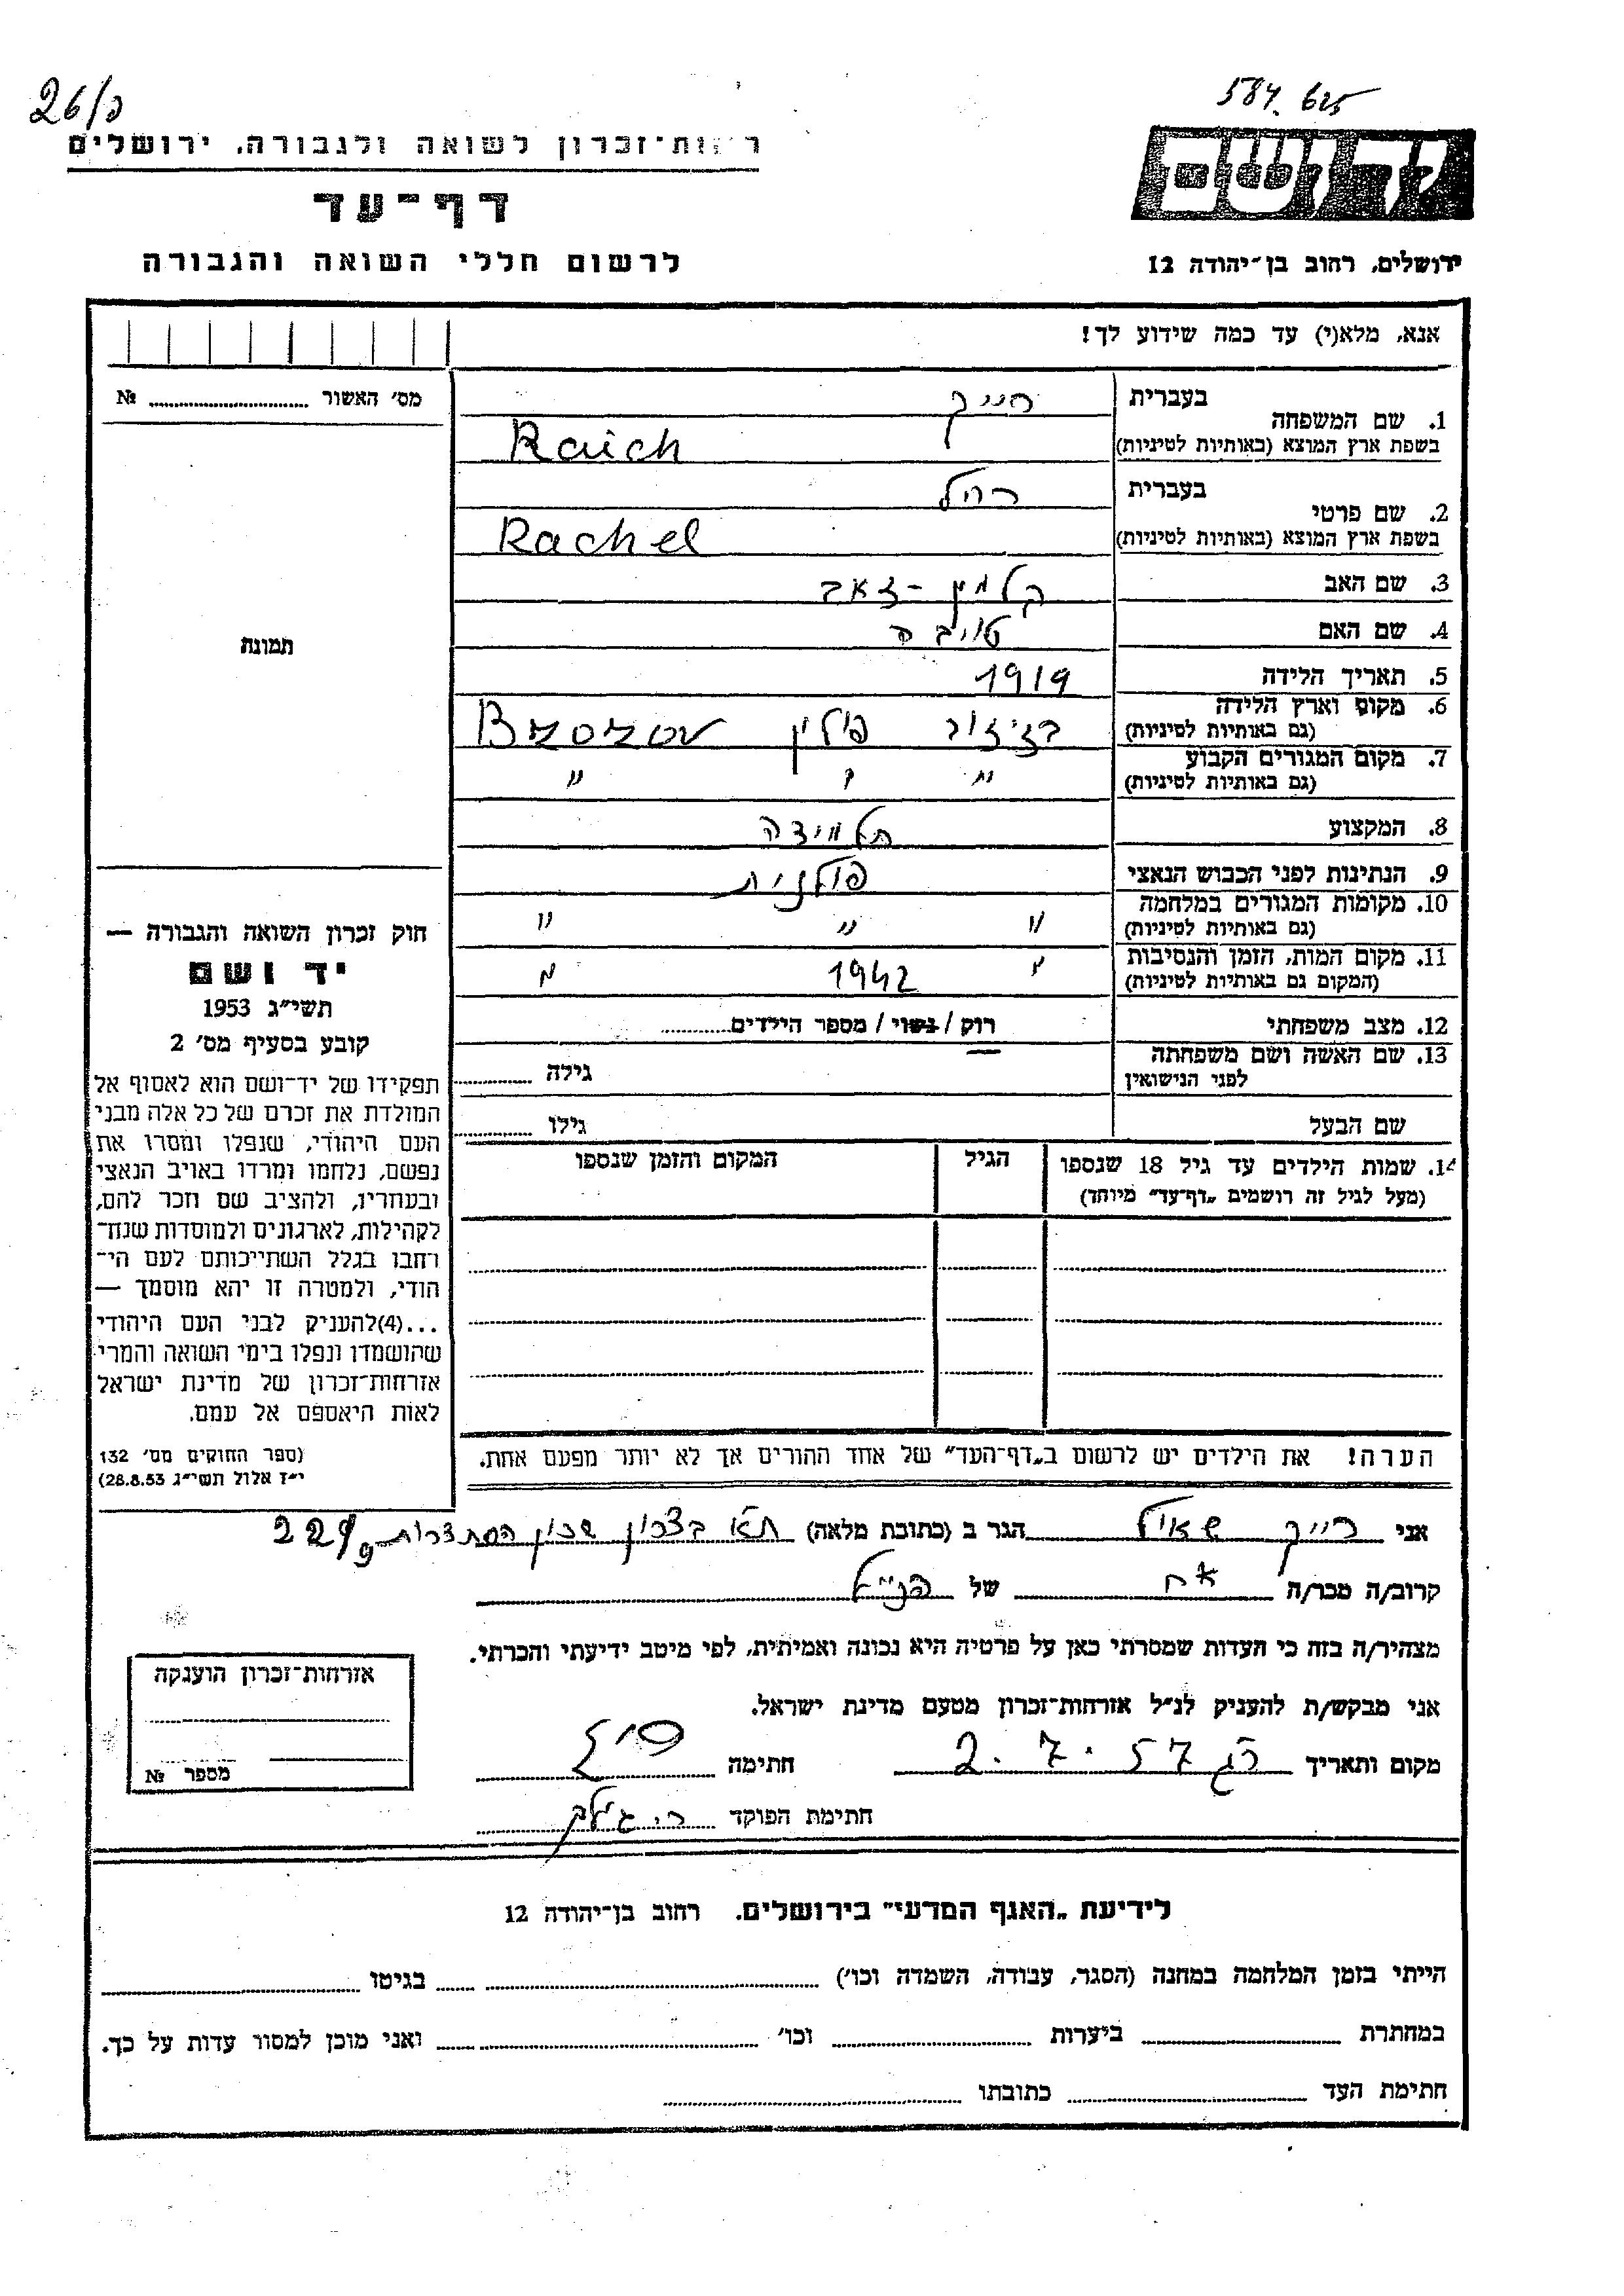 26/ק
584. 625
רשות־זכרון לשואה ולגבורה, ירושלים
יד ושם
דף־עד
לרשום חללי השואה והגבורה
ירושלים, רחוב בן־יהודה 12
אנא, מלא(י) עד כמה שידוע לך!
מס׳ האשור № 
1. שם המשפחה
בעברית רייך
בשפת ארץ המוצא (באותיות לטיניות) Raich
2. שם פרטי
בעברית רחל
בשפת ארץ המוצא (באותיות לטיניות) Rachel
3. שם האב קלמן - זאב
4. שם האם טויבה
5. תאריך הלידה 1919
6. מקום וארץ הלידה
(גם באותיות לטיניות) בז'יזוב פולין Bzozow
7. מקום המגורים הקבוע
(גם באותיות לטיניות) " " "
8. המקצוע תלמידה
9. הנתינות לפני הכבוש הנאצי פולנית
10. מקומות המגורים במלחמה
(גם באותיות לטיניות) " " "
11. מקום המות, הזמן והנסיבות
(המקום גם באותיות לטיניות) " 1942 "
12. מצב משפחתי רוק / נשוי / מספר הילדים
13. שם האשה ושם משפחתה
לפני הנישואין גילה
שם הבעל גילו
14. שמות הילדים עד גיל 18 שנספו
(מעל לגיל זה רושמים „דף־עד" מיוחד)
הגיל
המקום והזמן שנספו
הערה! את הילדים יש לרשום ב„דף־העד" של אחד ההורים אך לא יותר מפעם אחת.
תמונת
חוק זכרון השואה והגבורה —
יד ושם
תשי״ג 1953
קובע בסעיף מס׳ 2
תפקידו של יד־ושם הוא לאסוף אל
המולדת את זכרם של כל אלה מבני
העם היהודי, שנפלו ומסרו את
נפשם, נלחמו ומרדו באויב הנאצי
ובעוזריו, ולהציב שם וזכר להם,
לקהילות, לארגונים ולמוסדות שנח־
רחבו בגלל השתייכותם לעם הי־
הודי, ולמטרה זו יהא מוסמך —
...(4)להעניק לבני העם היהודי
שהושמדו ונפלו בימי השואה והמרי
אזרחות־זכרון של מדינת ישראל
לאות היאספם אל עמם.
(ספר החוקים מס׳ 132
י״ז אלול תשי״ג 28.8.53)
אני רייך שאול הגר ב (כתובת מלאה) ת״א בצרון שכון הסתדרות 229/9
קרוב/ה מכר/ה אח של הנ״ל
מצהיר/ה בזה כי העדות שמסרתי כאן על פרטיה היא נכונה ואמיתית, לפי מיטב ידיעתי והכרתי.
אני מבקש/ת להעניק לנ״ל אזרחות־זכרון מטעם מדינת ישראל.
מקום ותאריך רג 2.7.57 חתימה
חתימת הפוקד
אזרחות־זכרון הוענקה
מספר №
לידיעת „האגף המדעי" בירושלים, רחוב בן־יהודה 12
הייתי בזמן המלחמה במחנה (הסגר, עבודה, השמדה וכו׳) בגיטו
במחתרת ביערות וכו׳ ואני מוכן למסור עדות על כך.
חתימת העד כתובתו